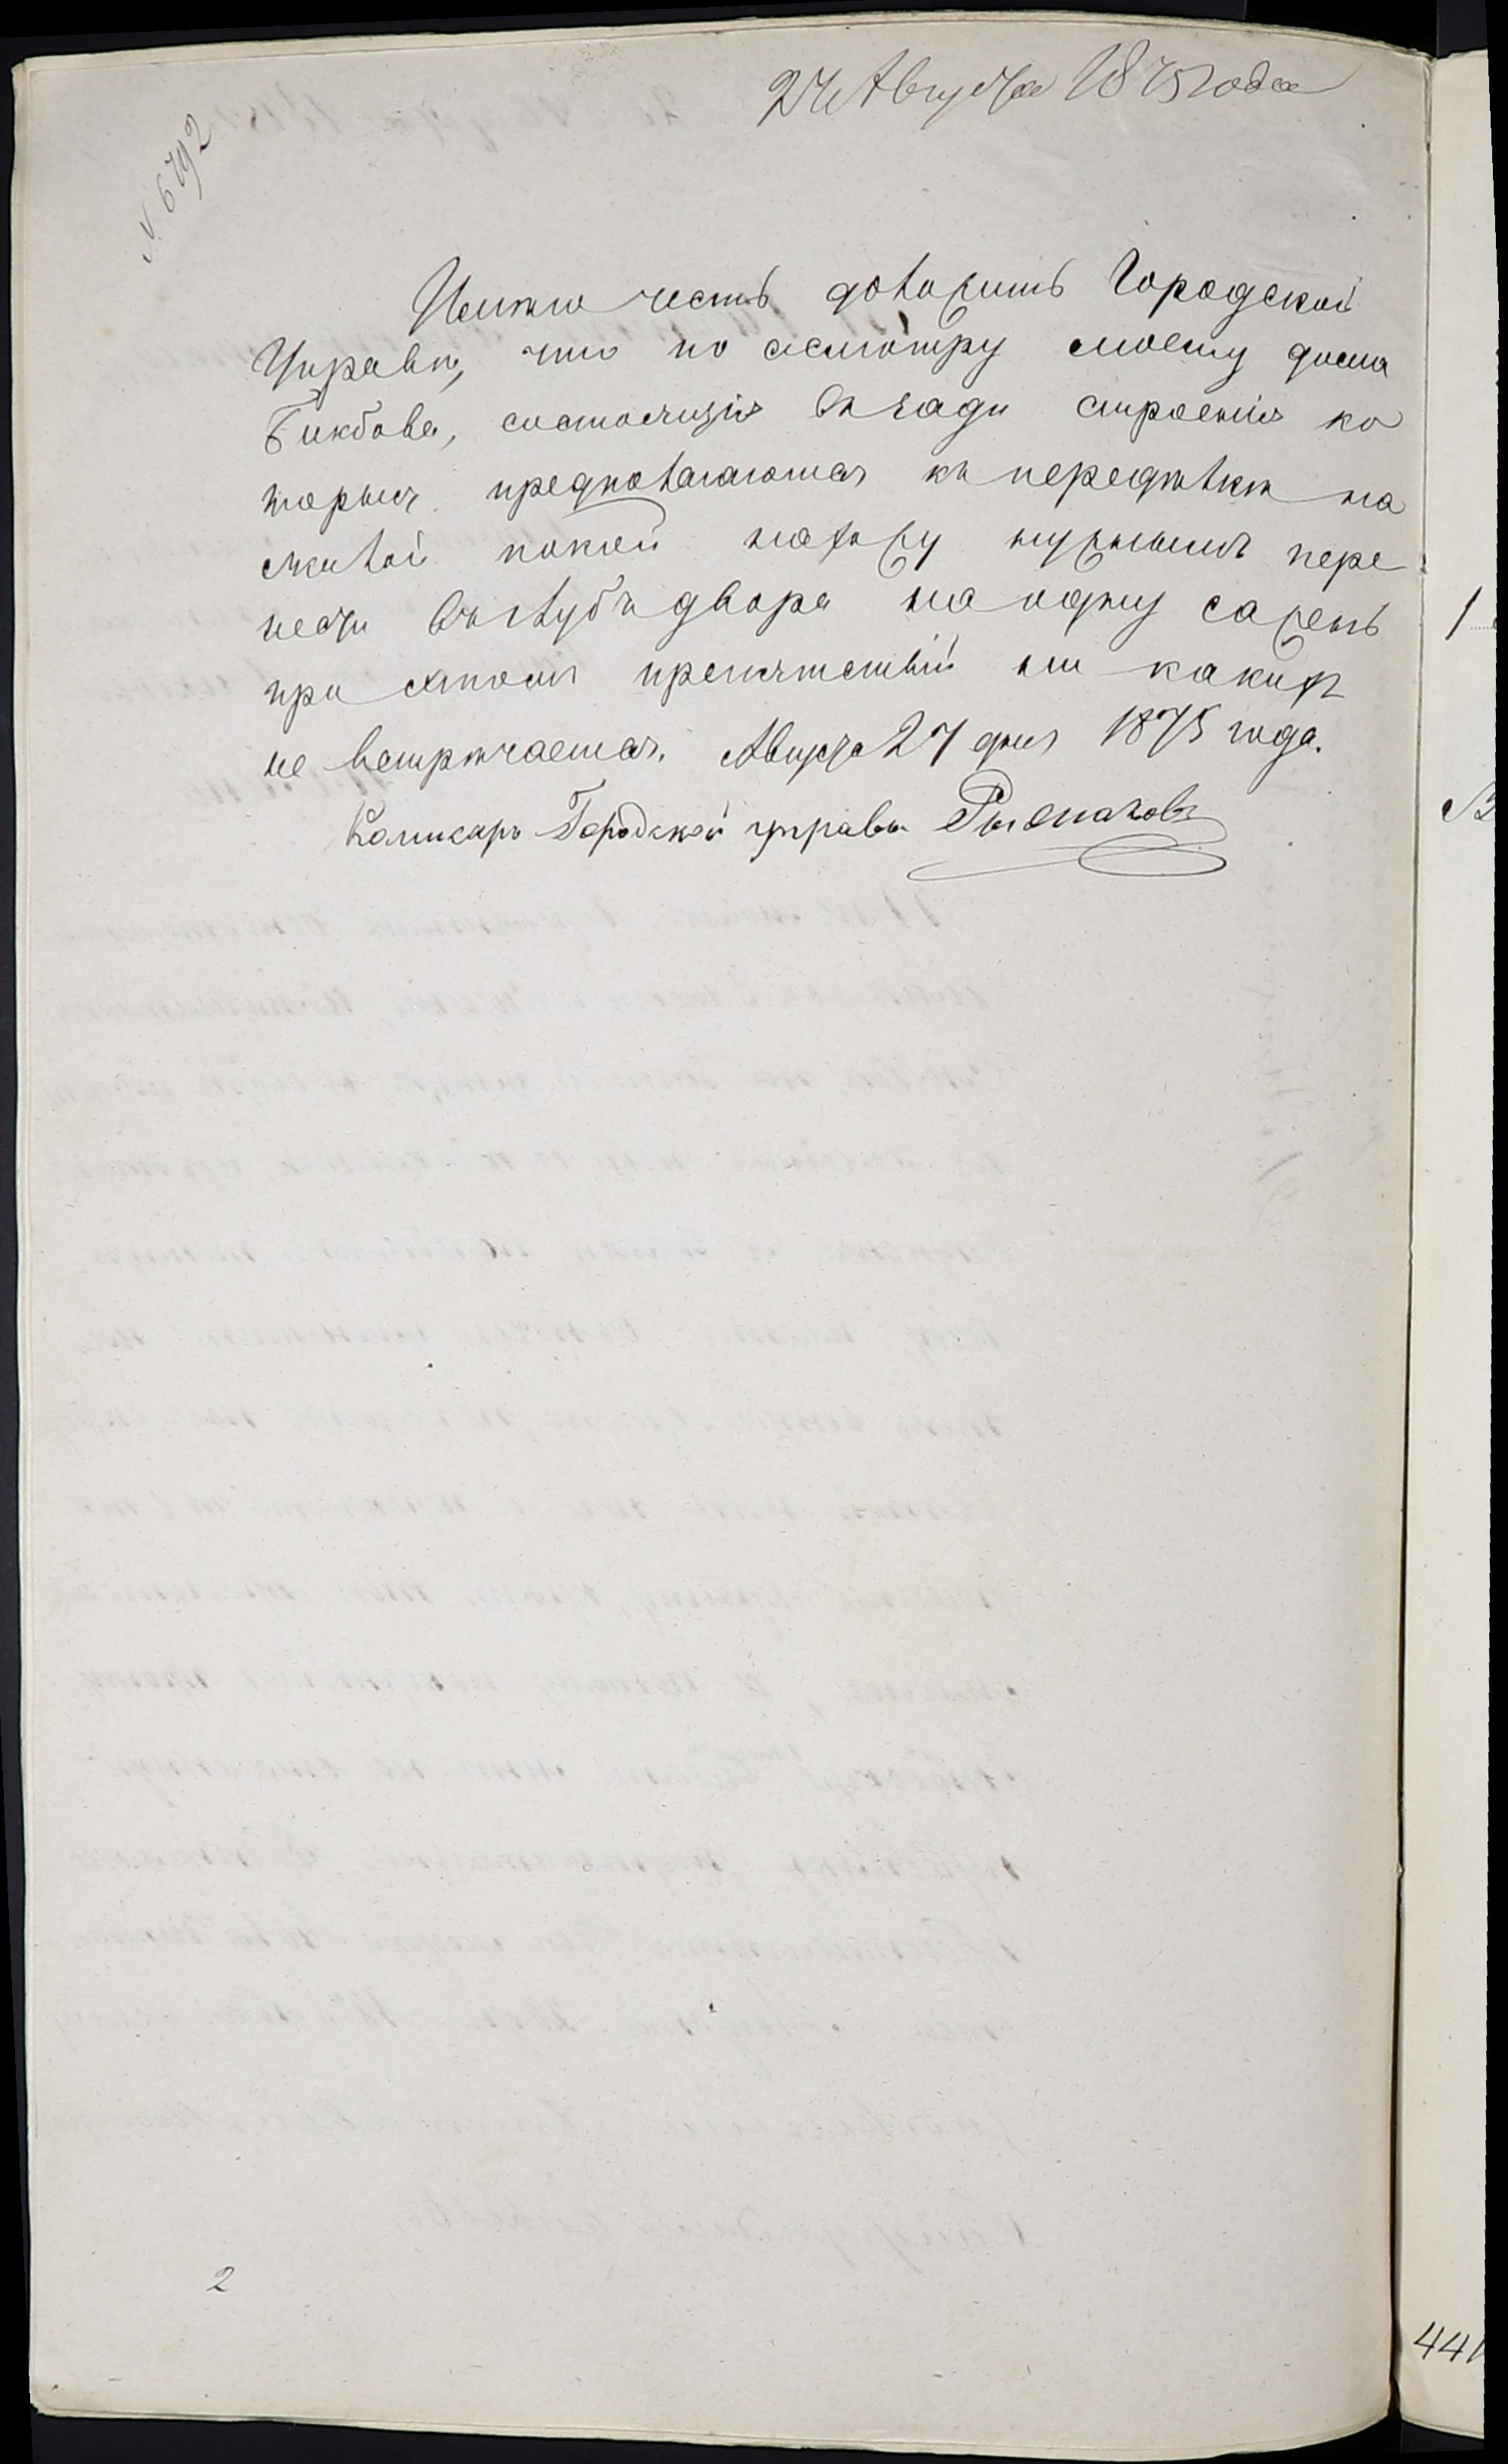 27 Августа 1875 года
N. 6792
Имѣю честь доложить Городской
Управѣ, что по осмотру моему дома
Бикбова, состоящія въ зади строенія ко
торыя предполагаются къ передѣлкѣ на
жилой покой нахожу нужнымъ пере
нести въ глубь двора на одну сажень
при чемъ препятствій ни какихъ
не встрѣчается. Августа 27 дня 1875 года.
Комисаръ Городской управы
2
1
441